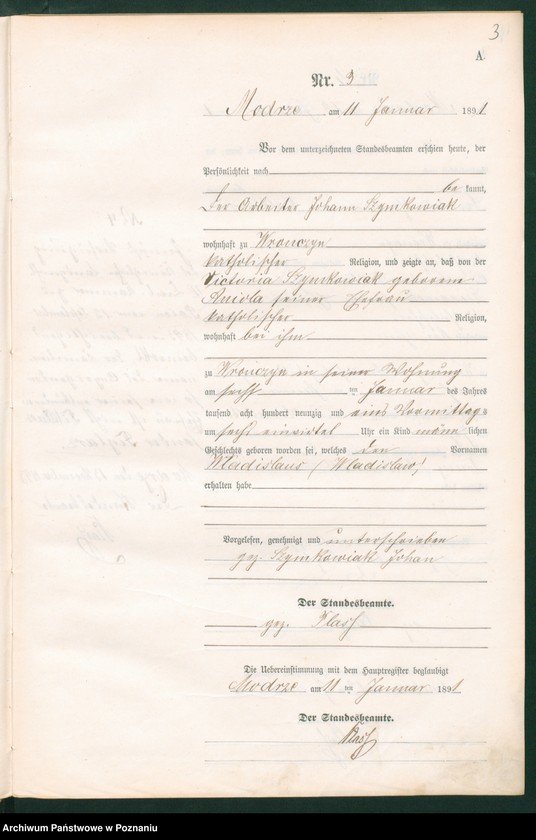 3
A.
Nr. 3
Modrze am 11 Januar 1891
Vor dem unterzeichneten Standesbeamten erschien heute, der
Persönlichkeit nach
be kannt,
der Arbeiter Johann Szymkowiak
wohnhaft zu Wronczyn
katholischer Religion, und zeigte an, daß von der
Victoria Szymkowiak geborene
Smiola seiner Ehefrau
katholischer Religion,
wohnhaft bei ihm
zu Wronczyn in seiner Wohnung
am sechs ten Januar des Jahres
tausend acht hundert neunzig und eins Vormittags
um sechs einviertel Uhr ein Kind männ lichen
Geschlechts geboren worden sei, welches den Vornamen
Wladislaus (Wladislaw)
erhalten habe
Vorgelesen, genehmigt und unterschrieben
gez. Szymkowiak Johan
Der Standesbeamte.
gez.
Die Uebereinstimmung mit dem Hauptregister beglaubigt
Modrze am 11 ten Januar 1891
Der Standesbeamte.
Archiwum Państwowe w Poznaniu